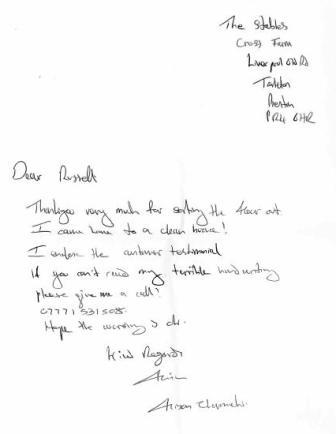 The Stables
Cross Farm
Liverpool Road
Tarleton
Preston
PR4 6HR
Dear Russell
Thankyou very much for sorting the floor out.
I came home to a clean house!
I enclose the customer testimonial
if you can't read my terrible handwriting
please give me a call!
07771 531508.
Hope the wording is ok.
Kind Regards